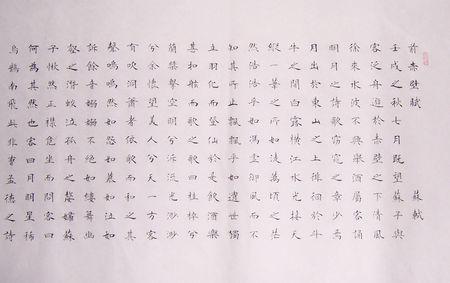 前赤壁賦 蘇軾
壬戌之秋七月既望蘇子與
客泛舟遊於赤壁之下清風
徐來水波不興舉酒屬客誦
明月之詩歌窈窕之章少焉
月出於東山之上徘徊於斗
牛之間白露橫江水光接天
縱一葦之所如凌萬頃之茫
然浩浩乎如馮虛御風而不
知其所止飄飄乎如遺世獨
立羽化而登仙於是飲酒樂
甚扣舷而歌之歌曰桂棹兮
蘭槳擊空明兮泝流光渺渺
兮余懷望美人兮天一方客
有吹洞簫者依歌而和之其
聲嗚嗚然如怨如慕如泣如
訴餘音嫋嫋不絕如縷舞幽
壑之潛蛟泣孤舟之嫠婦蘇
子愀然正襟危坐而問客曰
何為其然也客曰月明星稀
烏鵲南飛此非曹孟德之詩